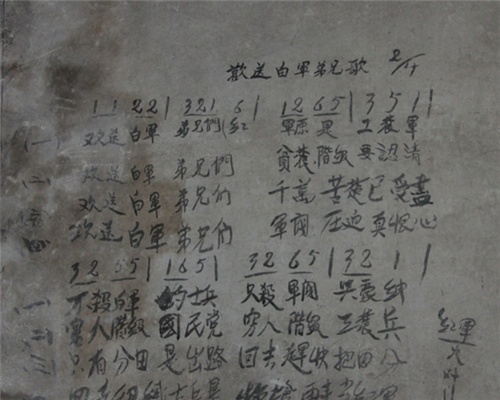 歡送白軍弟兄歌 2/4
1 1 2 2 | 3 2 1 6 | 1 2 6 5 | 3 5 1 |
(一) 欢送白軍 弟兄們 紅軍原是 工農軍
(二) 欢送白軍 弟兄們 貧農階級 要認清
(三) 欢送白軍 弟兄们 千萬苦楚已受盡
(四) 欢送白軍 弟兄们 軍閥压迫真恨心
3 2 5 5 | 1 6 5 | 3 2 6 5 | 3 2 1 1 |
(一) 不殺白軍的士兵 只殺軍閥
(二) 人階級國民党 穷人階級工農兵
(三) 只有分田是出路 回去趕快把田分
士兵
紅軍